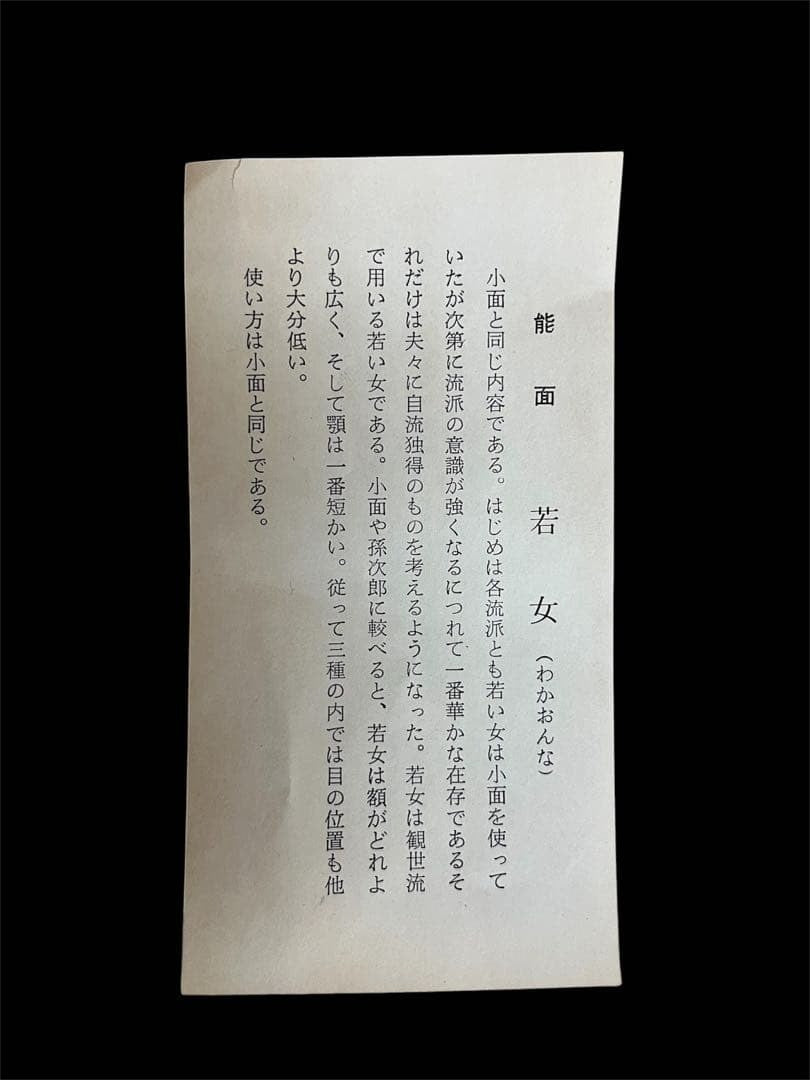 能面 若女（わかおんな）
小面と同じ内容である。はじめは各流派とも若い女は小面を使って
いたが次第に流派の意識が強くなるにつれて一番華かな在存であるそ
れだけは夫々に自流独得のものを考えるようになった。若女は観世流
で用いる若い女である。小面や孫次郎に較べると、若女は額がどれよ
りも広く、そして顎は一番短かい。従って三種の内では目の位置も他
より大分低い。
使い方は小面と同じである。